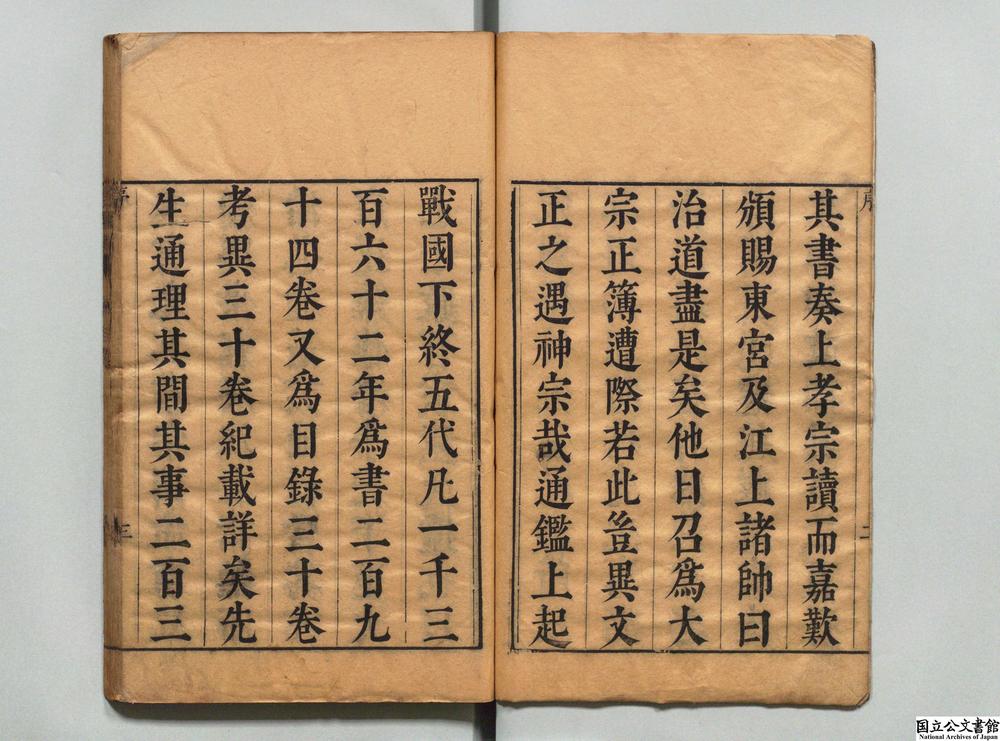 其書奏上孝宗讀而嘉歎
頒賜東宮及江上諸帥曰
治道盡是矣他日召爲大
宗正簿遭際若此豈異文
正之遇神宗哉通鑑上起
戰國下終五代凡一千三
百六十二年爲書二百九
十四卷又爲目錄三十卷
考異三十卷紀載詳矣先
生通理其間其事二百三
序
三
国立公文書館
National Archives of Japan